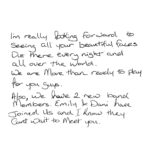 Im really looking forward to
Seeing all your beautiful faces
Out there every night and
all over the world.
We are More than ready to play
for you guys.
Also, We have 2 new band
Members. Emily & Dani have
Joined Us and I know they
Cant wait to Meet you.